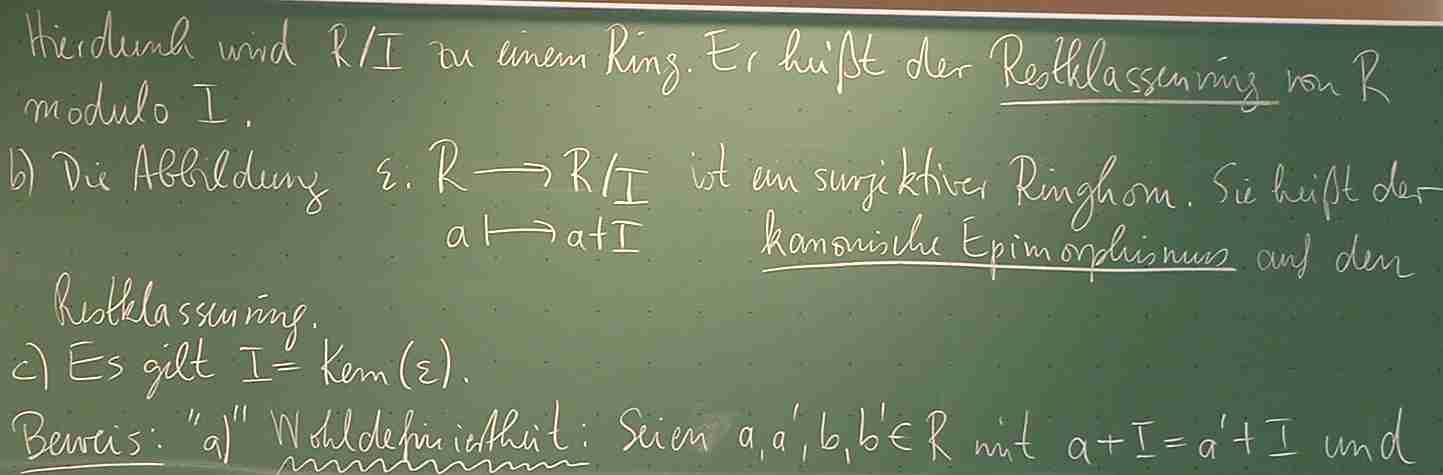 Hierdurch wird R/I zu einem Ring. Er heißt der Restklassenring von R
modulo I.
b) Die Abbildung ε: R → R/I ist ein surjektiver Ringhom. Sie heißt der
a ↦ a+I kanonische Epimorphismus auf den
Restklassenring.
c) Es gilt I = Kern(ε).
Beweis: "a)" Wohldefiniertheit: Seien a, a', b, b' ∈ R mit a+I = a'+I und